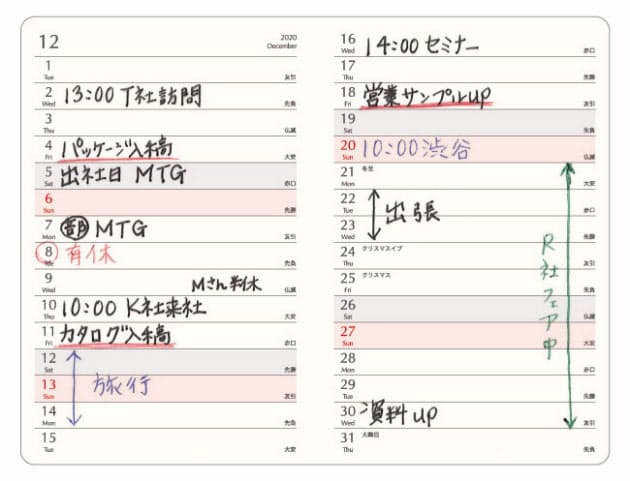 12
2020
December
1
Tue
友引
2
Wed
13:00 T社訪問
先負
3
Thu
仏滅
4
Fri
パッケージ入稿
大安
5
Sat
出社日 MTG
赤口
6
Sun
先勝
7
Mon
MTG
友引
8
有休
先負
9
Wed
Mさん半休
仏滅
10
Thu
10:00 K社来社
大安
11
Fri
カタログ入稿
赤口
12
Sat
先勝
13
Sun
旅行
友引
14
Mon
先負
15
Tue
大安
16
Wed
14:00 セミナー
赤口
17
Thu
先勝
18
Fri
営業サンプルUP
友引
19
Sat
先負
20
Sun
10:00 渋谷
仏滅
21
Mon
冬至
大安
22
Tue
赤口
出張
23
Wed
先勝
24
Thu
クリスマスイブ
友引
25
Fri
クリスマス
先負
26
Sat
仏滅
27
Sun
大安
28
Mon
赤口
29
Tue
先勝
30
Wed
資料UP
友引
31
Thu
大晦日
先負
R社フェア中